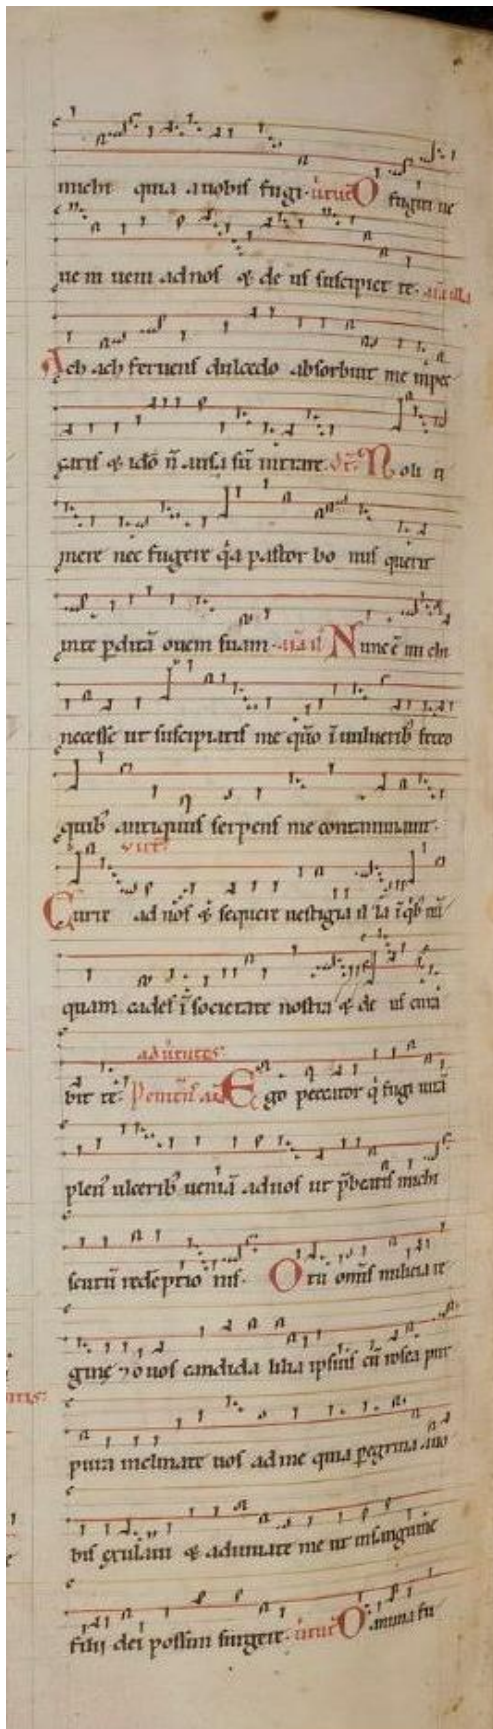 michi quia a uobis fugi. uirtut̄ O fugitiue
ueni ueni ad nos & de us suscipiet te. aīa illa
Ach ach feruens dulcedo absorbuit me in pec
catis & ido n̄ ausa sū intrare. uirt̄. Noli ti
mere nec fugere q̇a pastor bonus querit
inte pditā ouem suam. aīa il Nunc ē michi
necesse ut suscipiatis me qm̄ ī uulnerib; feteo
quib; antiquus serpens me contaminauit.
uirt̄
Curre ad nos & sequere uestigia il la ī qb; nū
quam cades ī societate nostra & deus cura
bit te. Penitēs aīa
ad uirtutes.
Ego peccator q̇ fugi uitā
plen̄ ulcerib; ueniā ad uos ut p̄beatis michi
scutū redēptionis. O tu omīs milicia re
ginę & o uos candida lilia ipsius cū rosea pur
pura inclinate uos ad me quia peregrina a uo
bis exulaui & adiuuate me ut in sanguine
filij dei possim surgere. uirtut̄ O anima fu